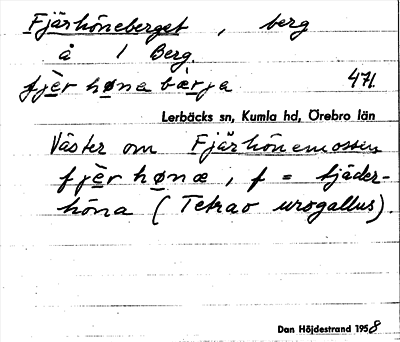 Fjärhöneberget, berg
å 1 Berg.
fjèr høna bær̀ja 471.
Lerbäcks sn, Kumla hd, Örebro län
Väster om Fjärhönemossen
fjèr hønæ, f = fjäder-
höna (Tetrao urogallus).
Dan Höjdestrand 1958